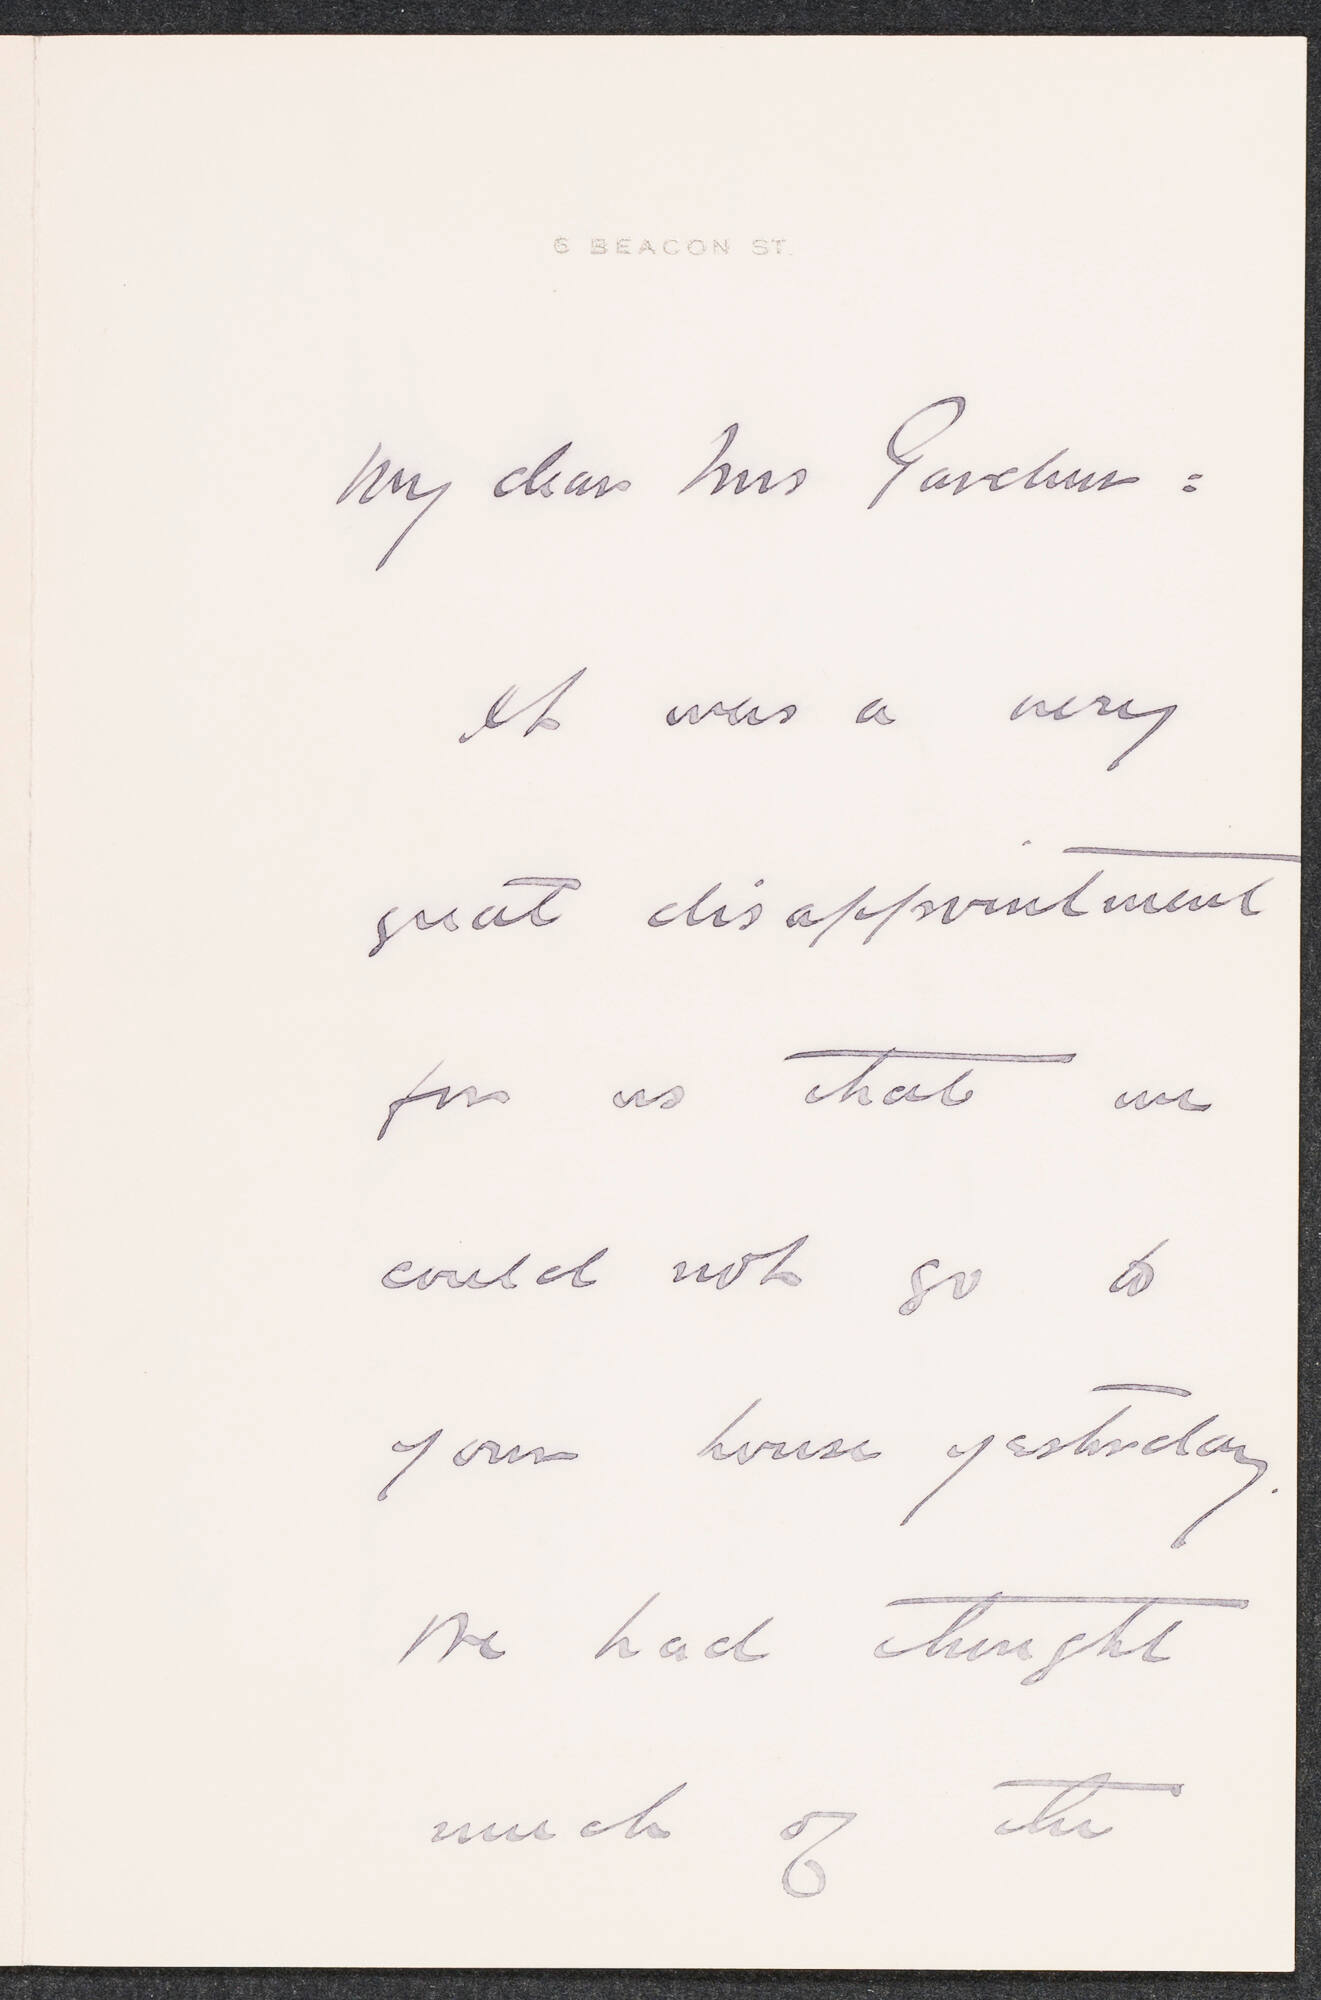 6 BEACON ST.
My dear Mrs Gardner:
It was a very
great disappointment
for us that we
could not go to
your house yesterday.
We had thought
much of the